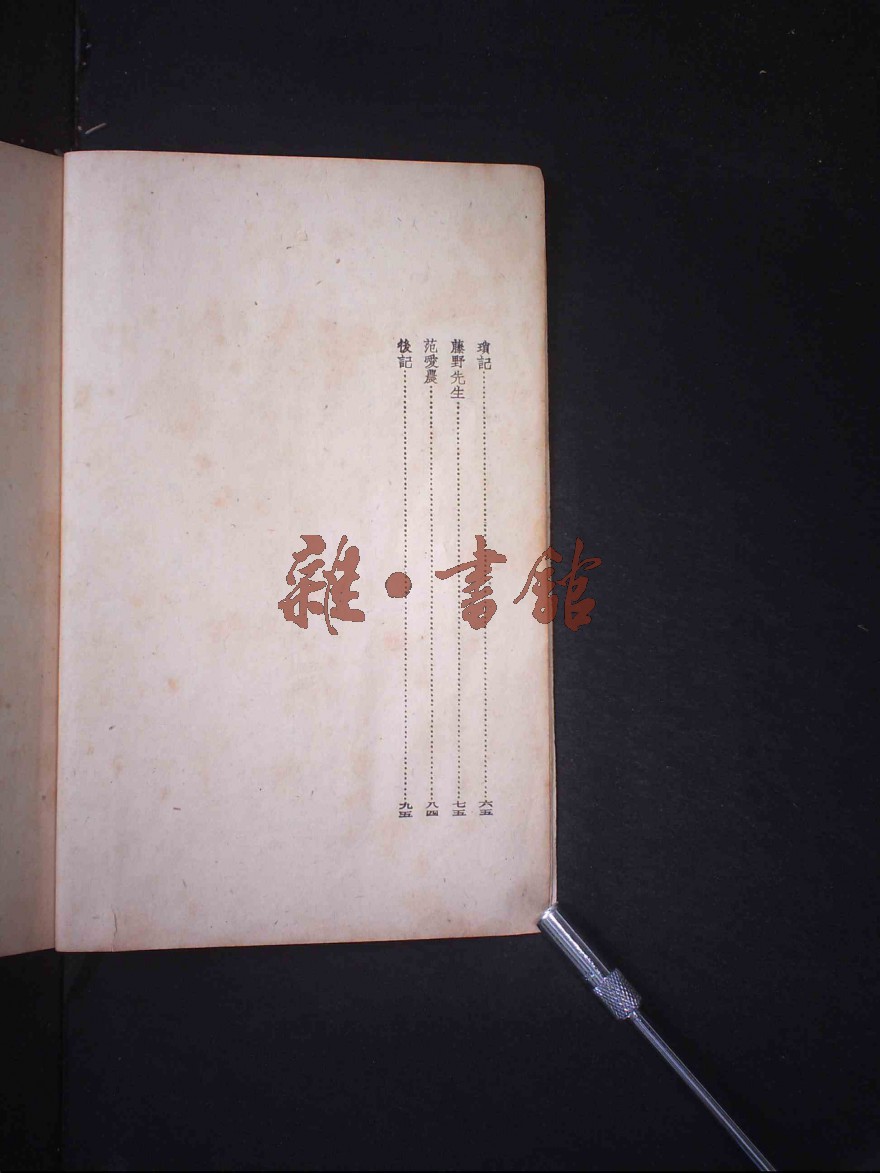 瑣記……六五
藤野先生……七五
范愛農……八四
後記……九五
雜·書館